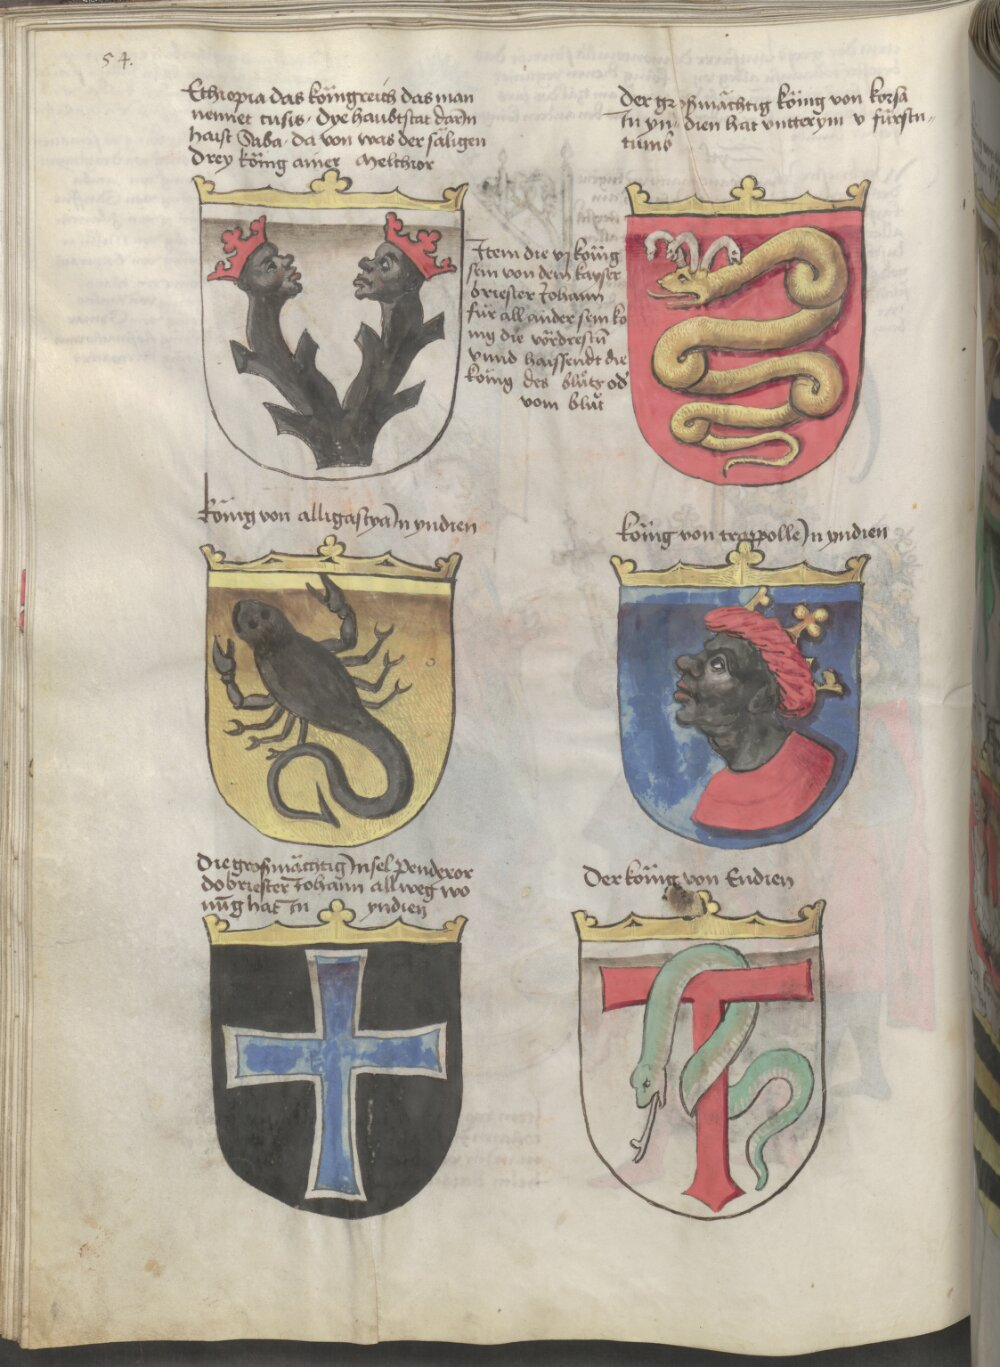 54.
Ethiopia das köingreich das man
nennet tusis. Dye haubtstat darIn
haist Saba. da von was der säligen
Drey köing ainer Melchior
Der großmächtig köing von korsa
In yndien hat untterym v fürstn-
tumb
Item die vj köing
sein von dem kayser
briester Johann
für all ander sein kö
nig die vördresten
vnnd haissendt die
köing des blütz od
vom blüt
köinig von alligastya In yndien
köing von trappolle In yndien
Die großmächtig Insel Penderor
do briester Johann allweg wo
nüg hat In yndien
Der köing von Endien